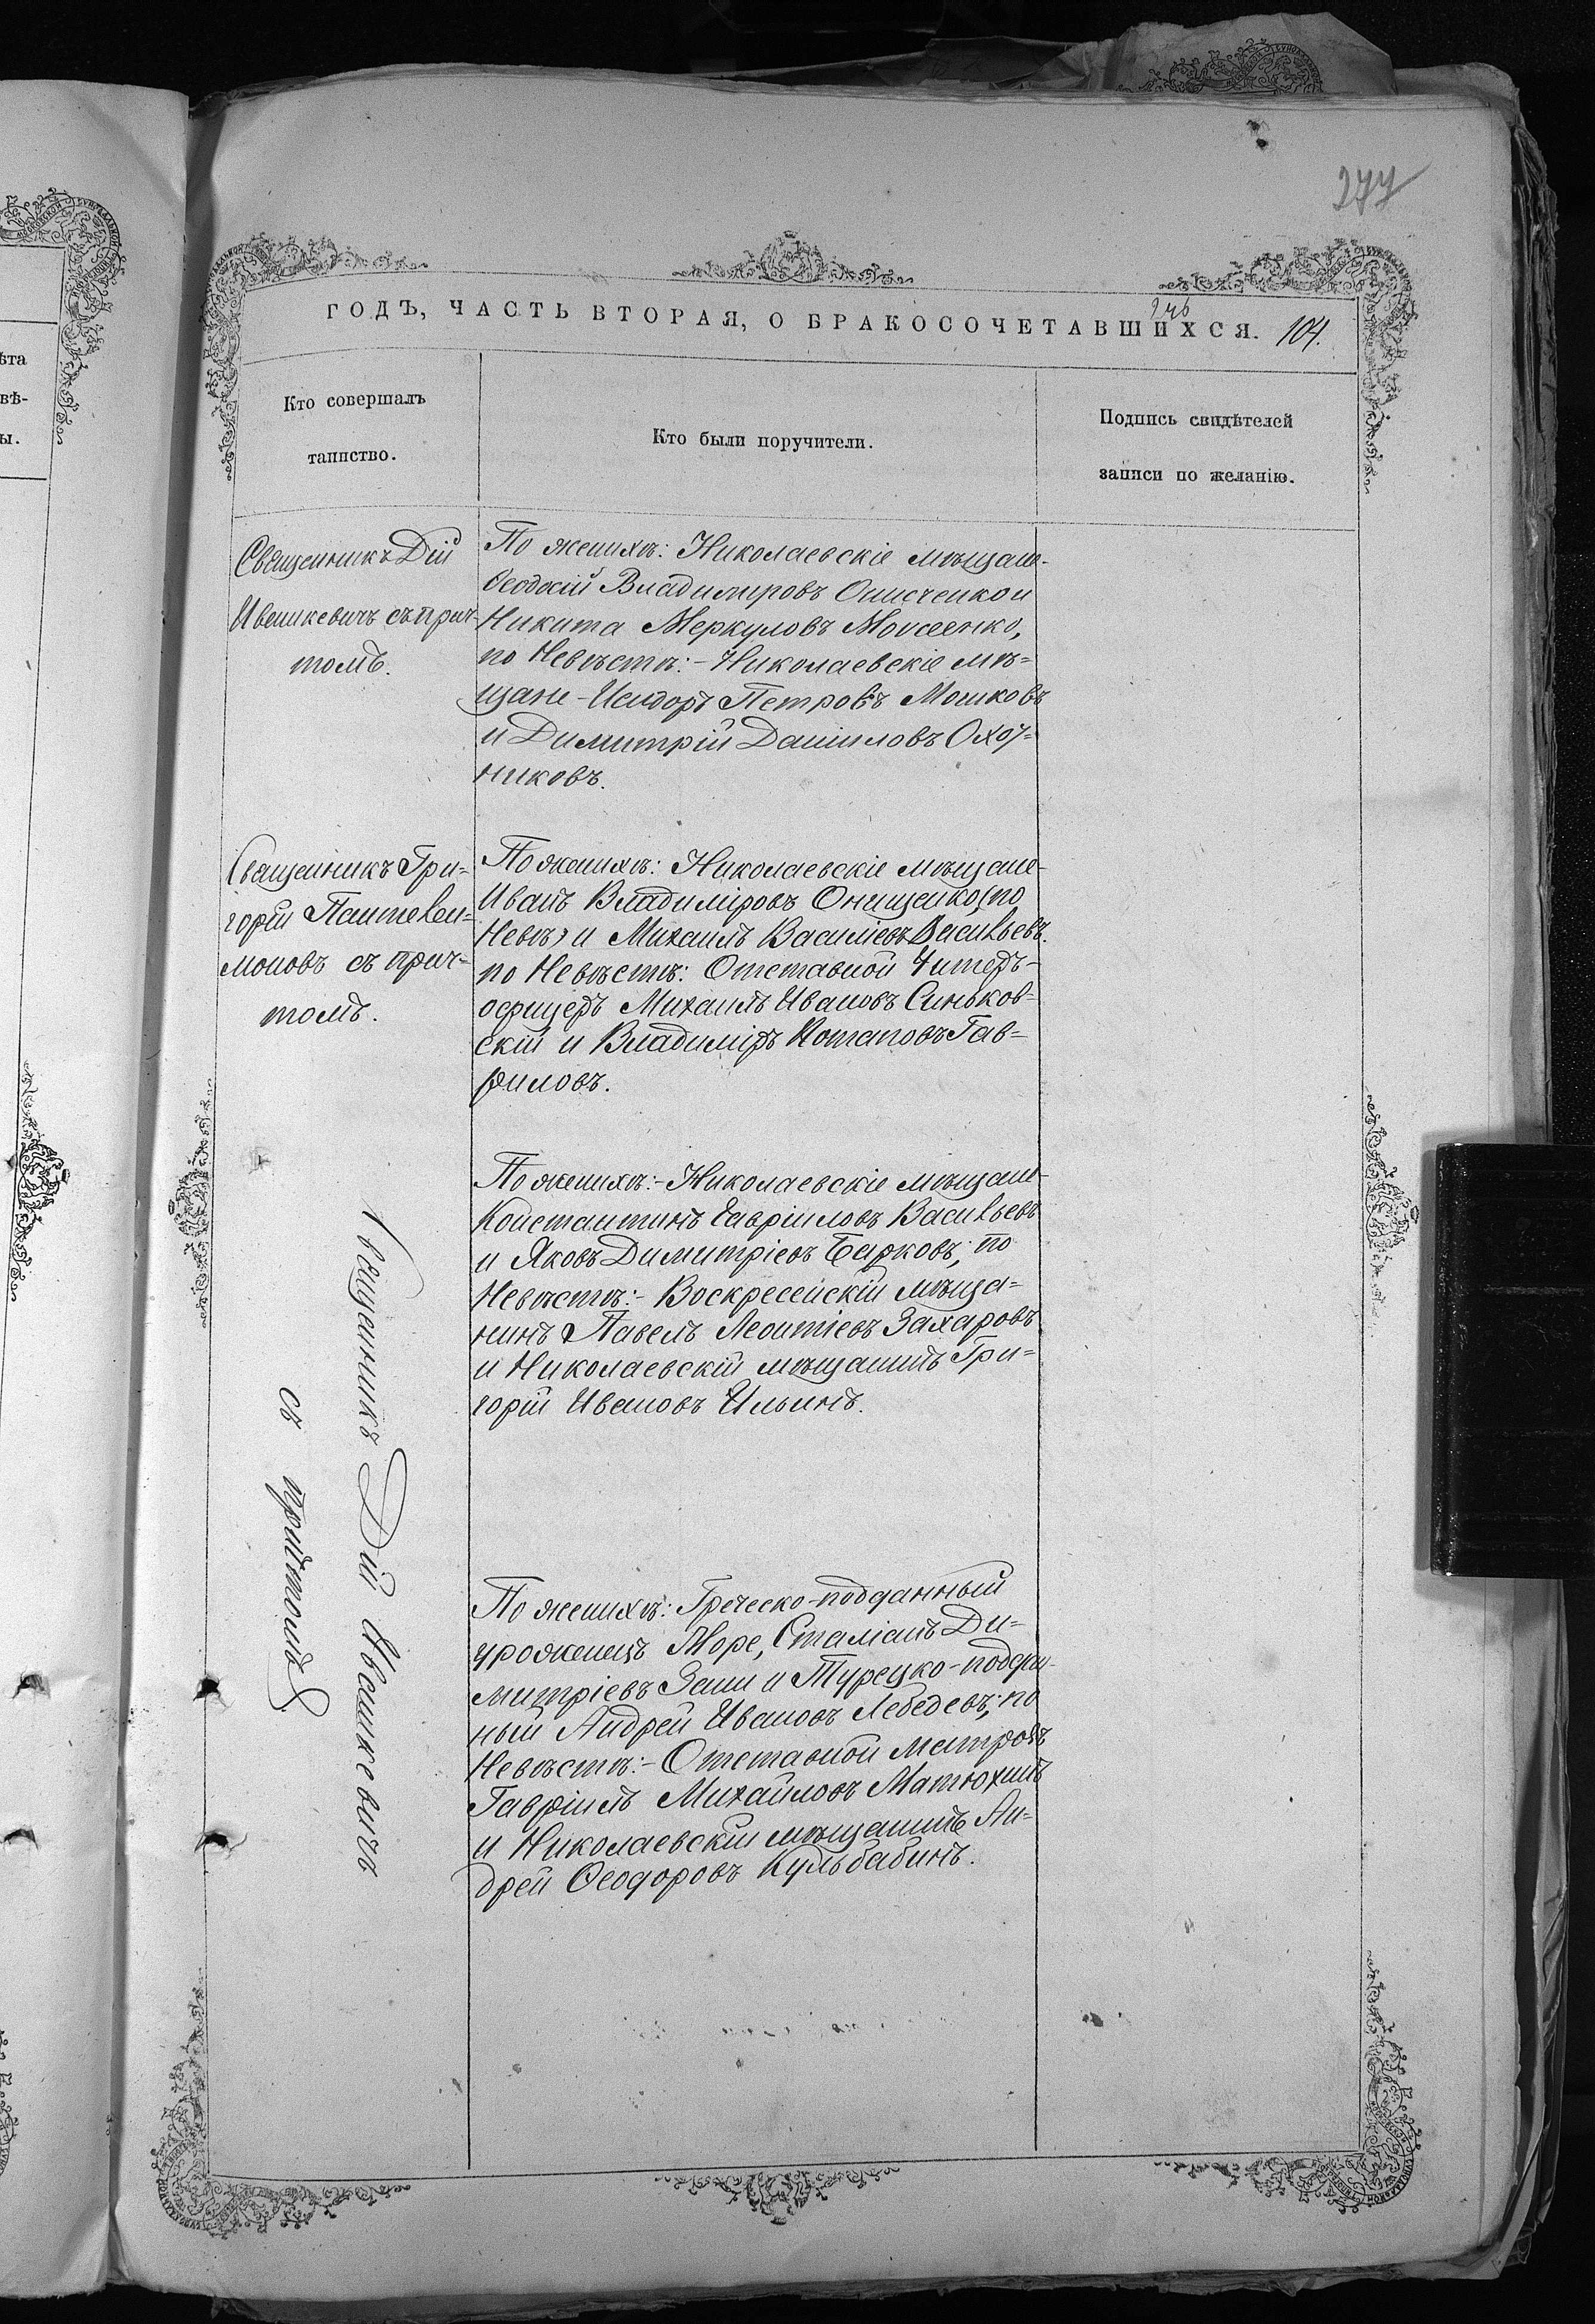 277
ГОДЪ, ЧАСТЬ ВТОРАЯ, О БРАКОСОЧЕТАВШИХСЯ.
246
104.
Кто совершалъ
таинство.
Кто были поручители.
Подпись свидѣтелей
записи по желанію.
Священникъ Дій
Ивашкевичъ съ прич-
томъ.
По женихѣ: Николаевскіе мѣщане-
Ѳеодосій Владиміровъ Онисченко и
Никита Меркуловъ Моисеенко,
по Невѣстѣ:- Николаевскіе мѣ=
щане - Исидоръ Петровъ Мошковъ
и Димитрій Даниіловъ Охот=
никовъ.
Священникъ Гри=
горій Пантелеи=
моновъ съ прич=
томъ.
По женихѣ: Николаевскіе мѣщане-
Иванъ Владиміровъ Онищенко (по
Невѣ) и Михаилъ Василіевъ Васильевъ.
по Невѣстѣ: Отставной Унтеръ-
офицеръ Михаилъ Ивановъ Синьков-
скій и Владиміръ Потаповъ Гав=
риловъ.
Священникъ Дій Ивашкевичъ
съ причтомъ
По женихѣ:- Николаевскіе мѣщане-
Константинъ Гавріиловъ Васильевъ
и Яковъ Димитріевъ Барковъ; по
Невѣстѣ:- Воскресенскій мѣща=
нинъ Павелъ Леонтіевъ Захаровъ
и Николаевскій мѣщанинъ Гри=
горій Ивановъ Ильинъ.
По женихѣ: Греческо-подданный
уроженецъ Море, Сталіанъ Ди=
митріевъ Заши и Турецко-поддан-
ный Андрей Ивановъ Лебедевъ; по
Невѣстѣ:- Отставной Матросъ
Гавріилъ Михайловъ Матюхинъ
и Николаевскій мѣщанинъ Ан=
дрей Ѳеодоровъ Кульбабинъ.
ѣта
вѣ-
ы.